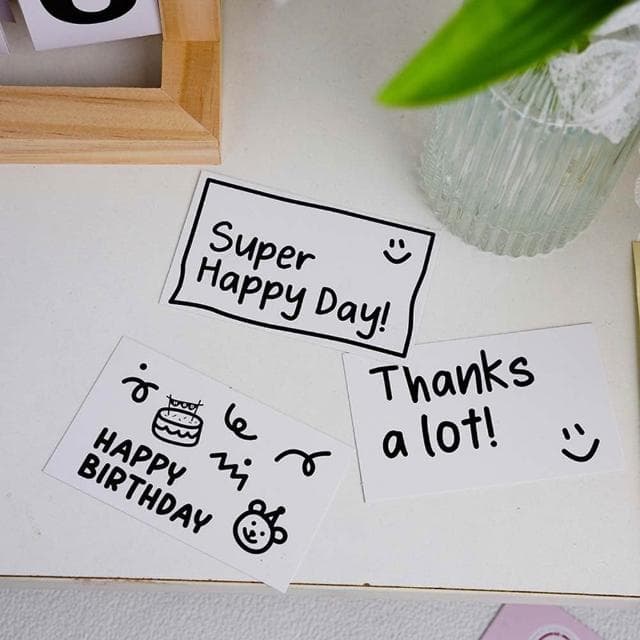 Super
Happy Day!
Thanks
a lot!
HAPPY
BIRTHDAY